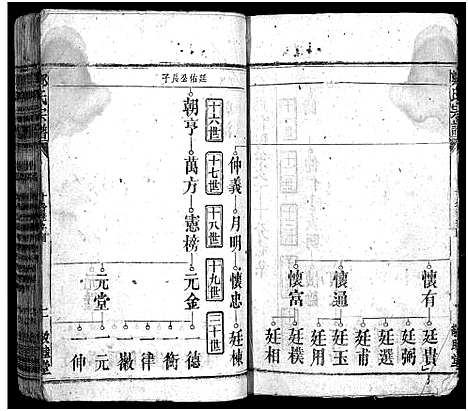 懷有 懷通 懷富
廷貴 廷弼 廷選 廷甫 廷玉 廷用 廷樸 廷相
仲義 月明 懷忠 廷棟
十六世 十七世 十八世 十九世 二十世
廷佑公長子
朝亨 萬方 憲榜 元金 元堂
一德 一衡 一律 一徽 一元 一仲
氏宗譜